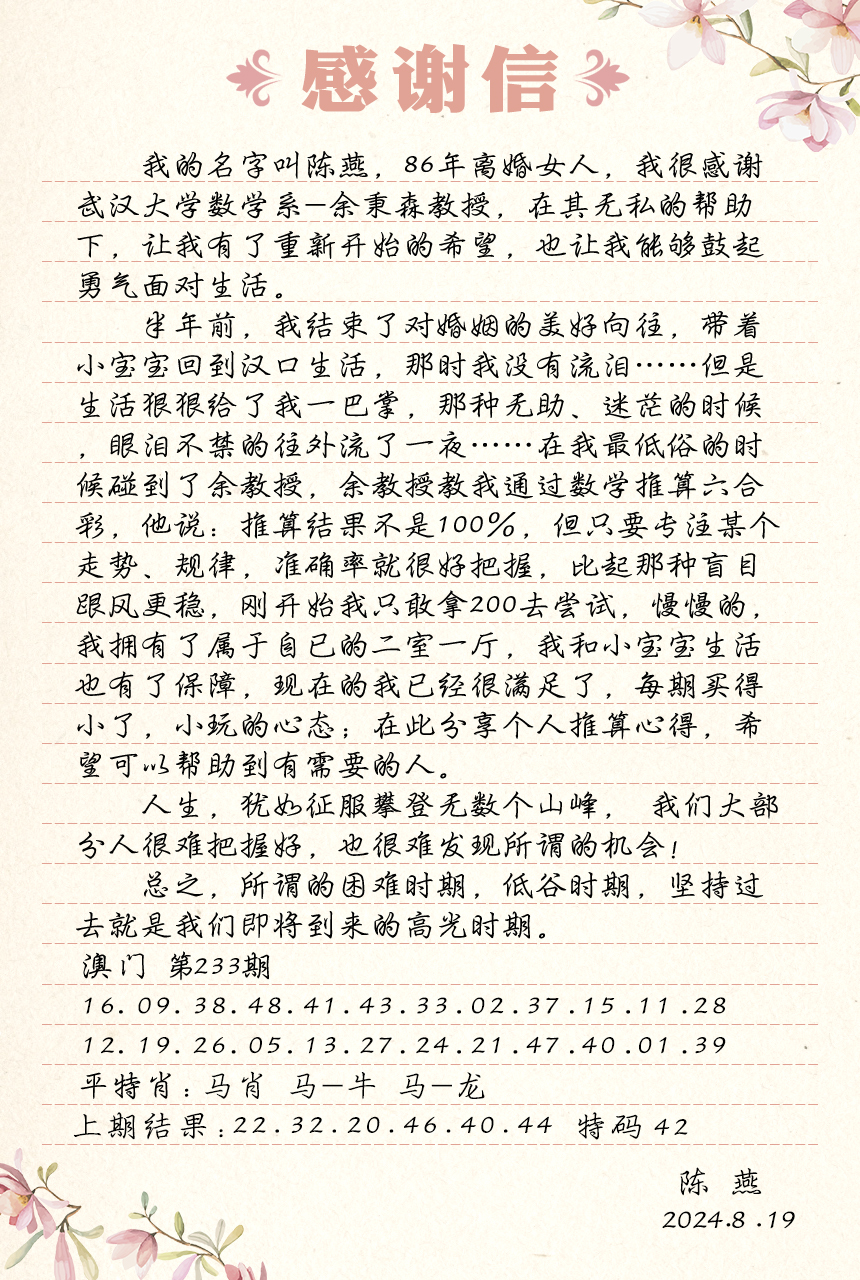 感谢信
我的名字叫陈燕，86年离婚女人，我很感谢
武汉大学数学系—余秉森教授，在其无私的帮助
下，让我有了重新开始的希望，也让我能够鼓起
勇气面对生活。
半年前，我结束了对婚姻的美好向往，带着
小宝宝回到汉口生活，那时我没有流泪……但是
生活狠狠给了我一巴掌，那种无助、迷茫的时候
，眼泪不禁的往外流了一夜……在我最低俗的时
候碰到了余教授，余教授教我通过数学推算六合
彩，他说：推算结果不是100%，但只要专注某个
走势、规律，准确率就很好把握，比起那种盲目
跟风更稳，刚开始我只敢拿200去尝试，慢慢的，
我拥有了属于自已的二室一厅，我和小宝宝生活
也有了保障，现在的我已经很满足了，每期买得
小了，小玩的心态；在此分享个人推算心得，希
望可以帮助到有需要的人。
人生，犹如征服攀登无数个山峰， 我们大部
分人很难把握好，也很难发现所谓的机会！
总之，所谓的困难时期，低谷时期，坚持过
去就是我们即将到来的高光时期。
澳门 第233期
16.09.38.48.41.43.33.02.37.15.11.28
12.19.26.05.13.27.24.21.47.40.01.39
平特肖：马肖 马—牛 马—龙
上期结果：22.32.20.46.40.44 特码 42
陈 燕
2024.8.19